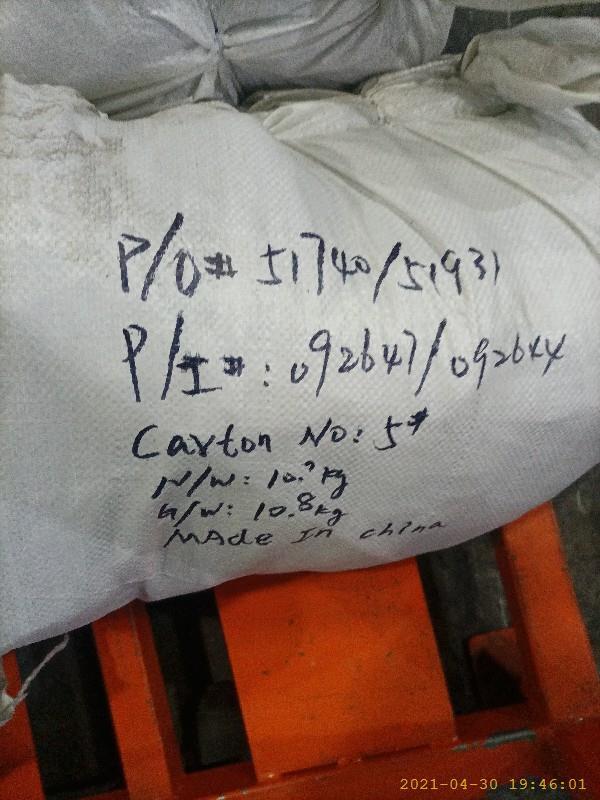 P/O# 51740/51931
P/I#: 092647/092644
Carton No: 5#
N/W: 10.7kg
G/W: 10.8kg
MAde In china
2021-04-30 19:46:01